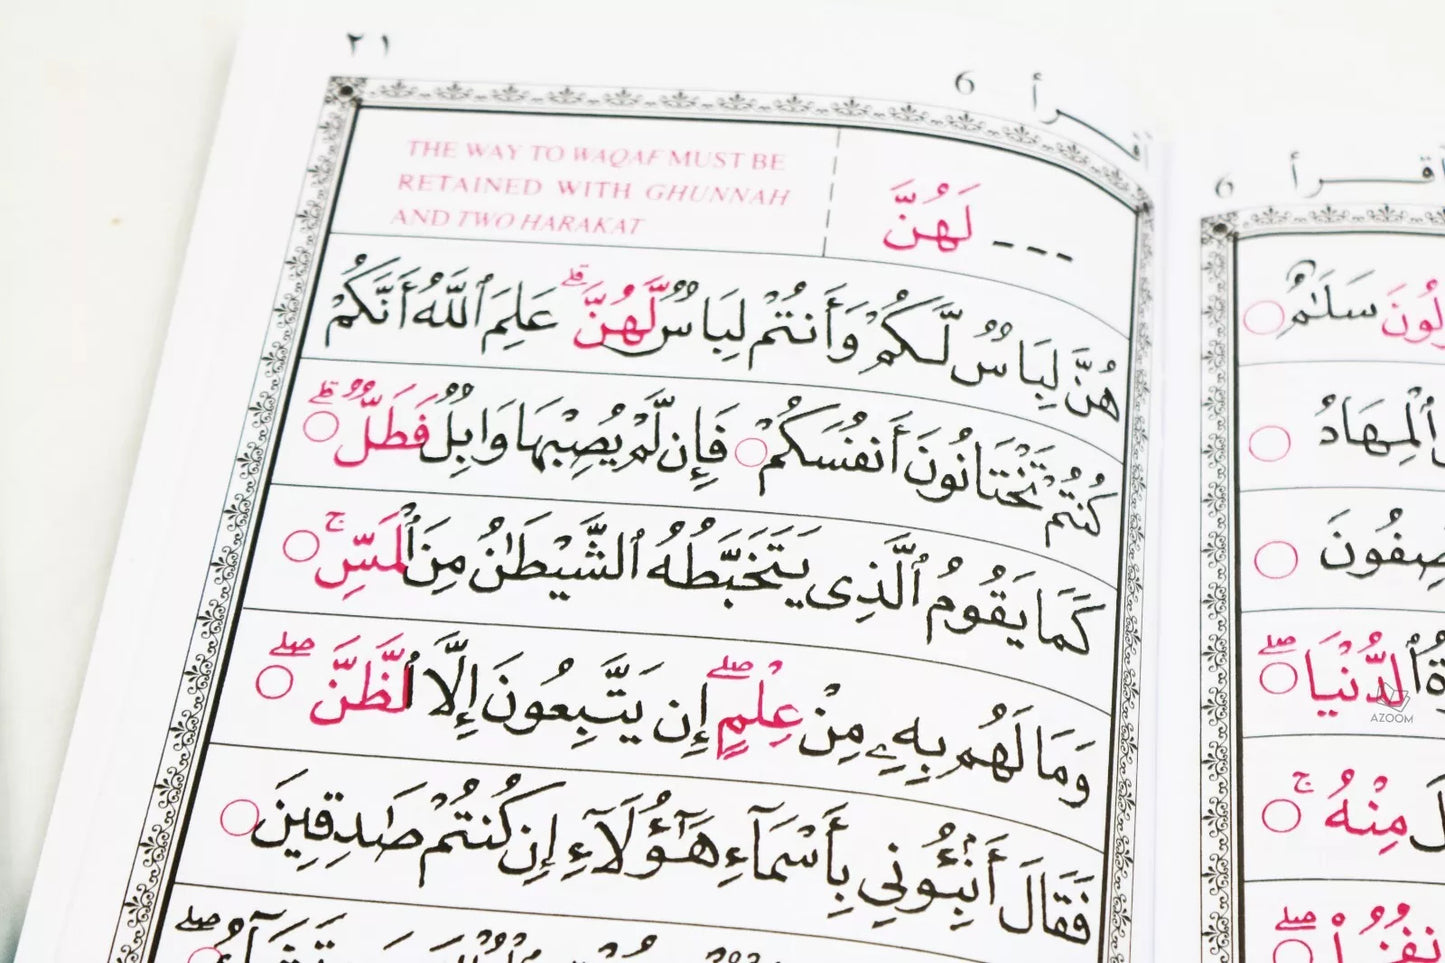 ٢١
6 اقـــرأ
THE WAY TO WAQAF MUST BE
RETAINED WITH GHUNNAH
AND TWO HARAKAT
--- لَهُنَّ
هُنَّ لِبَاسٌ لَّكُمْ وَأَنتُمْ لِبَاسٌ لَّهُنَّ ۗ عَلِمَ ٱللَّهُ أَنَّكُمْ
كُنتُمْ تَخْتَانُونَ أَنفُسَكُمْ ○ فَإِن لَّمْ يُصِبْهَا وَابِلٌ فَطَلٌّ ۗ ○
كَمَا يَقُومُ ٱلَّذِى يَتَخَبَّطُهُ ٱلشَّيْطَٰنُ مِنَ ٱلْمَسِّ ۚ ○
وَمَا لَهُم بِهِۦ مِنْ عِلْمٍ ۖ إِن يَتَّبِعُونَ إِلَّا ٱلظَّنَّ ۖ ○
فَقَالَ أَنۢبِـُٔونِى بِأَسْمَآءِ هَٰٓؤُلَآءِ إِن كُنتُمْ صَٰدِقِينَ ○
6 اقـــرأ
سَلَٰمٌ ○
ٱلْمِهَادُ ○
○
ٱلدُّنْيَا ۖ ○
مِنْهُ ۚ ○
AZOOM